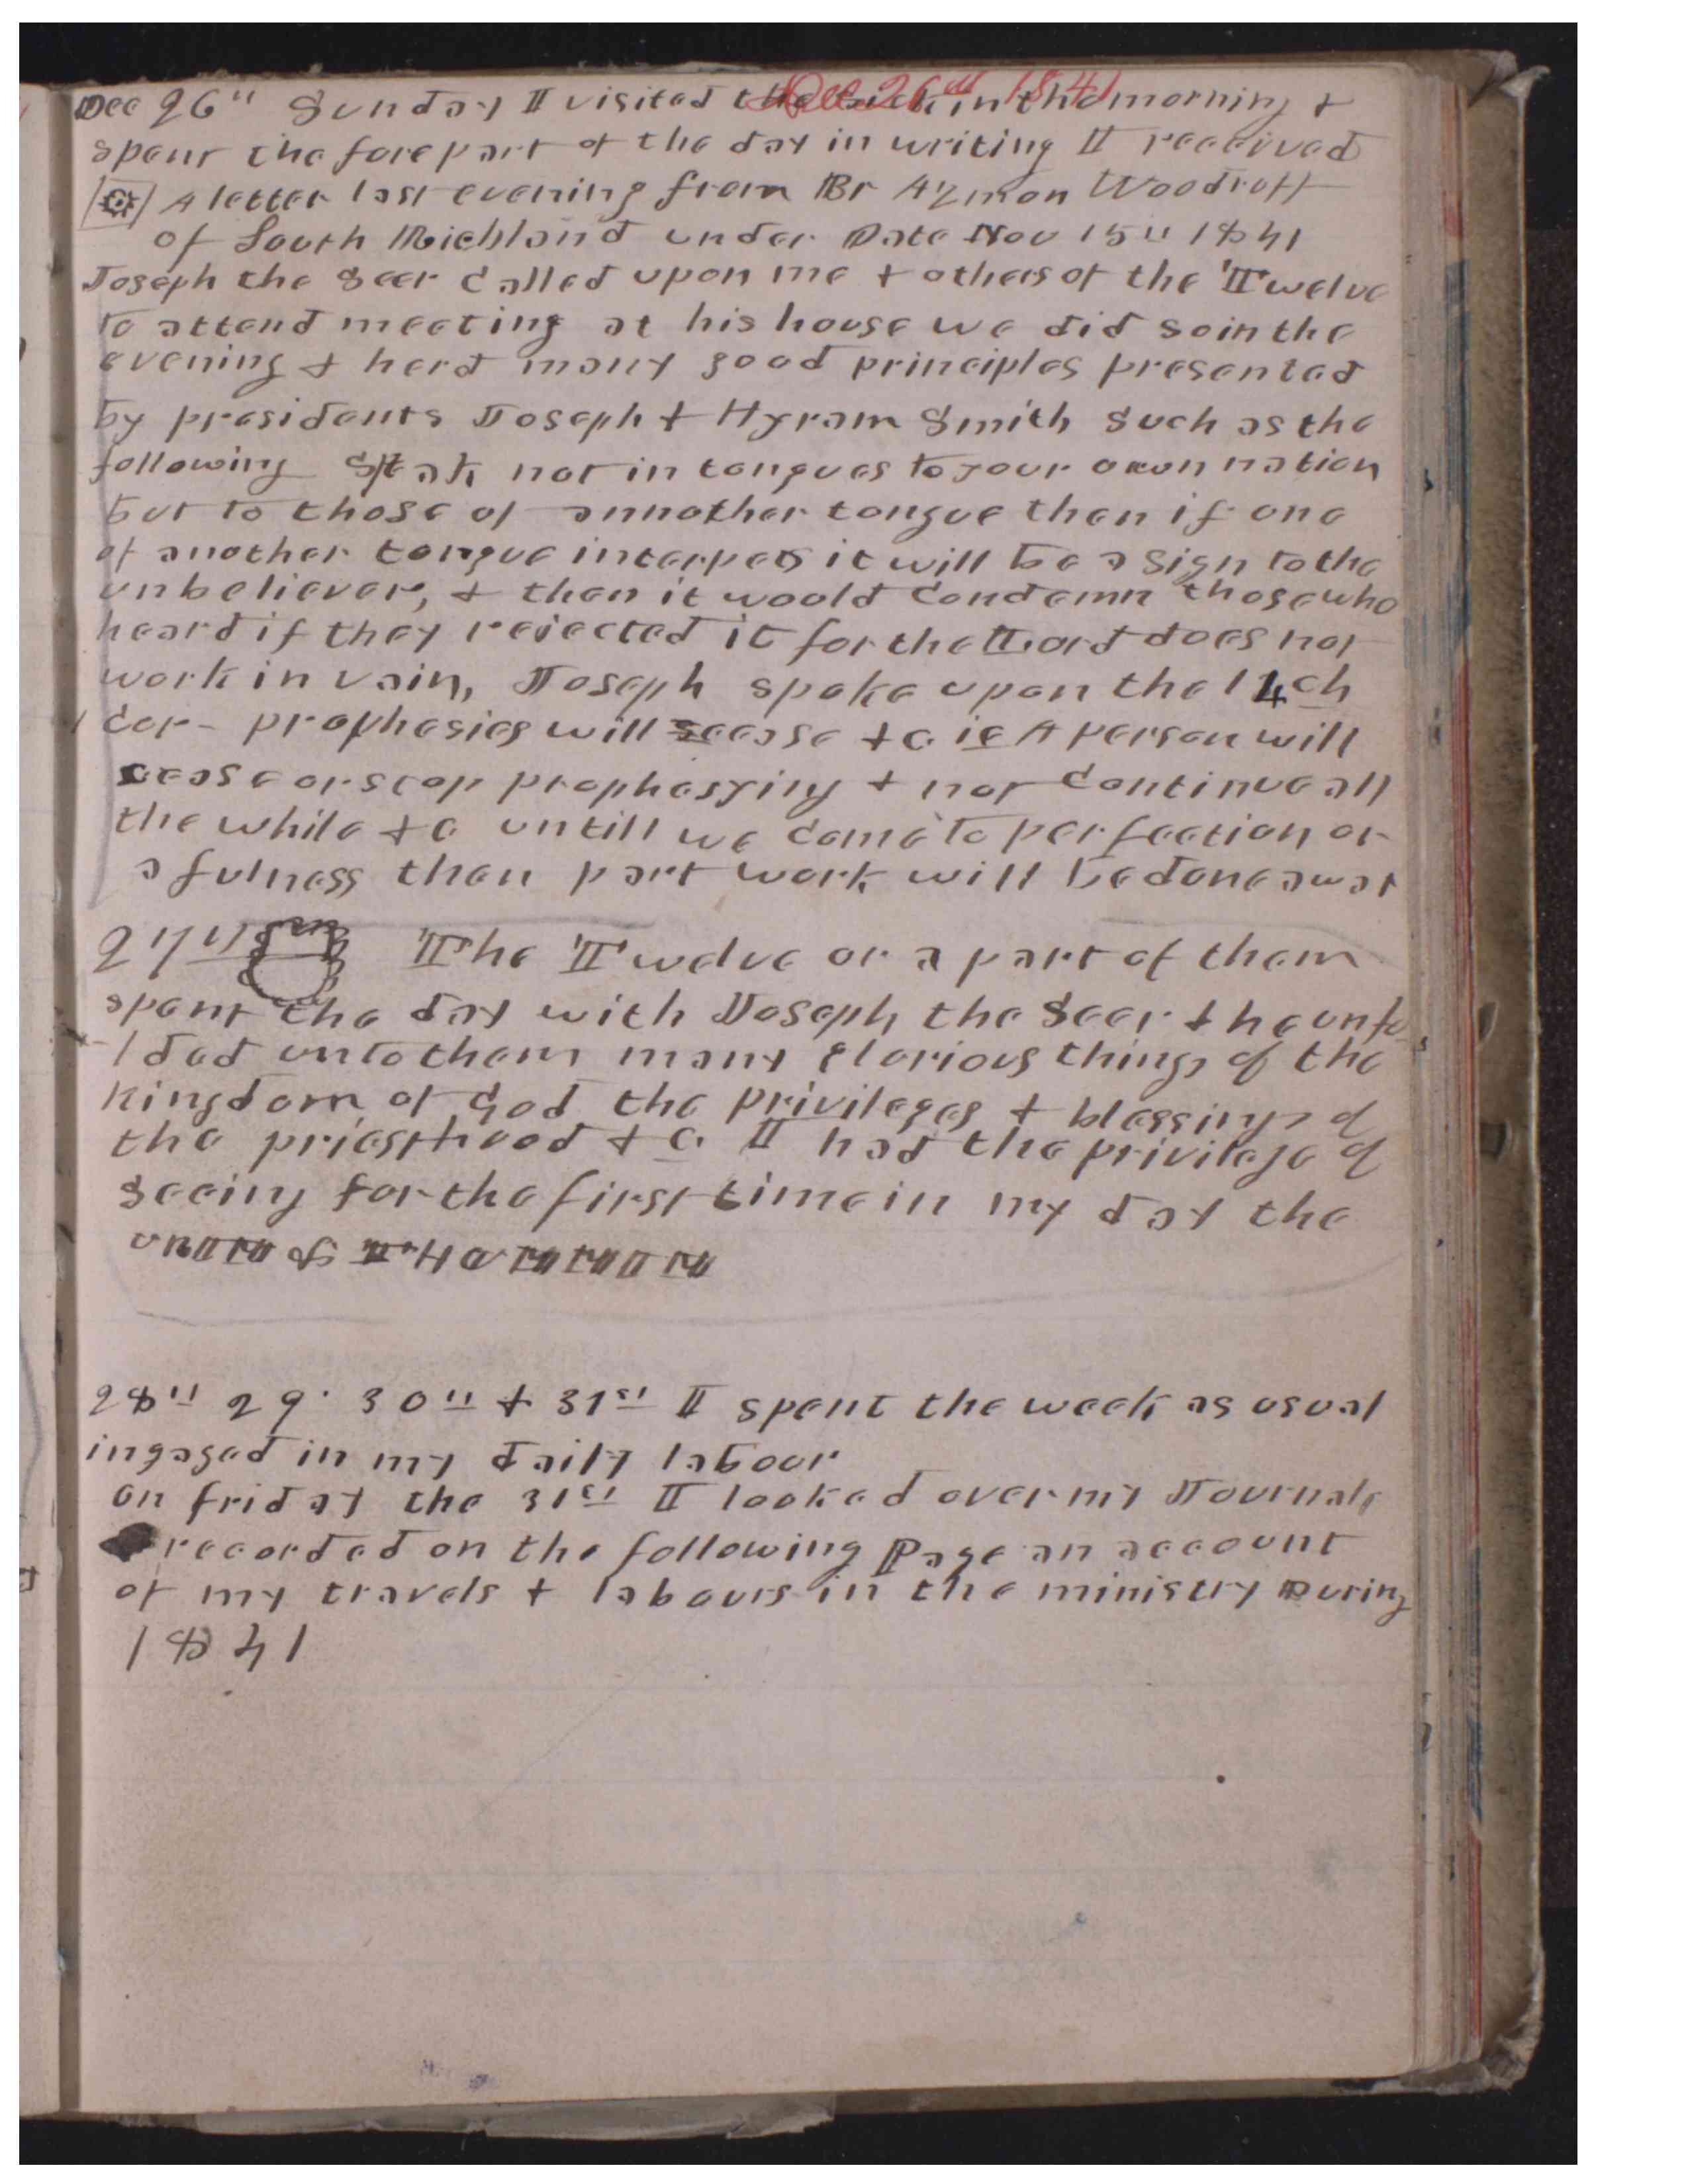 Dec 26th 1841
Dec 26th Sunday I visited the sick in the morning &
spent the forepart of the day in writing I received
A letter last evening from Br Azmon Woodruff
of South Richland under Date Nov 15th 1841
Joseph the Seer called upon me & others of the Twelve
to attend meeting at his house we did so in the
evening & herd many good principles presented
by presidents Joseph & Hyram Smith Such as the
following Speak not in tongues to your own nation
but to those of annother tongue then if one
of another tongue interpets it will be a sign to the
unbeliever, & then it would condemn those who
heard if they rejected it for the Lord does not
work in vain, Joseph spoke upon the 14 ch
1 Cor- prophesies will cease &c ie A person will
cease or stop prophesying & not continue all
the while &c untill we come to perfection or
a fulness then part work will be done away
27th The Twelve or a part of them
spent the day with Joseph the Seer & he unfo-
-lded unto them many glorious things of the
kingdom of God the privileges & blessings of
the priesthood &c. I had the privilege of
seeing for the first time in my day the
28th 29. 30th & 31st I spent the week as usual
ingaged in my daily labour
on friday the 31st I looked over my Journals
recorded on the following Page an account
of my travels & labours in the ministry During
1841